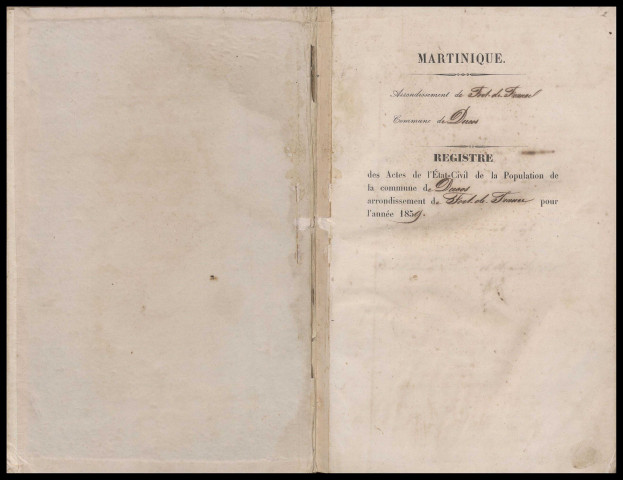 MARTINIQUE.
Arrondissement de Fort-de-France
Commune de Ducos
REGISTRE
des Actes de l'État-Civil de la Population de
la commune de Ducos
arrondissement de Fort-de-France pour
l'année 1859.